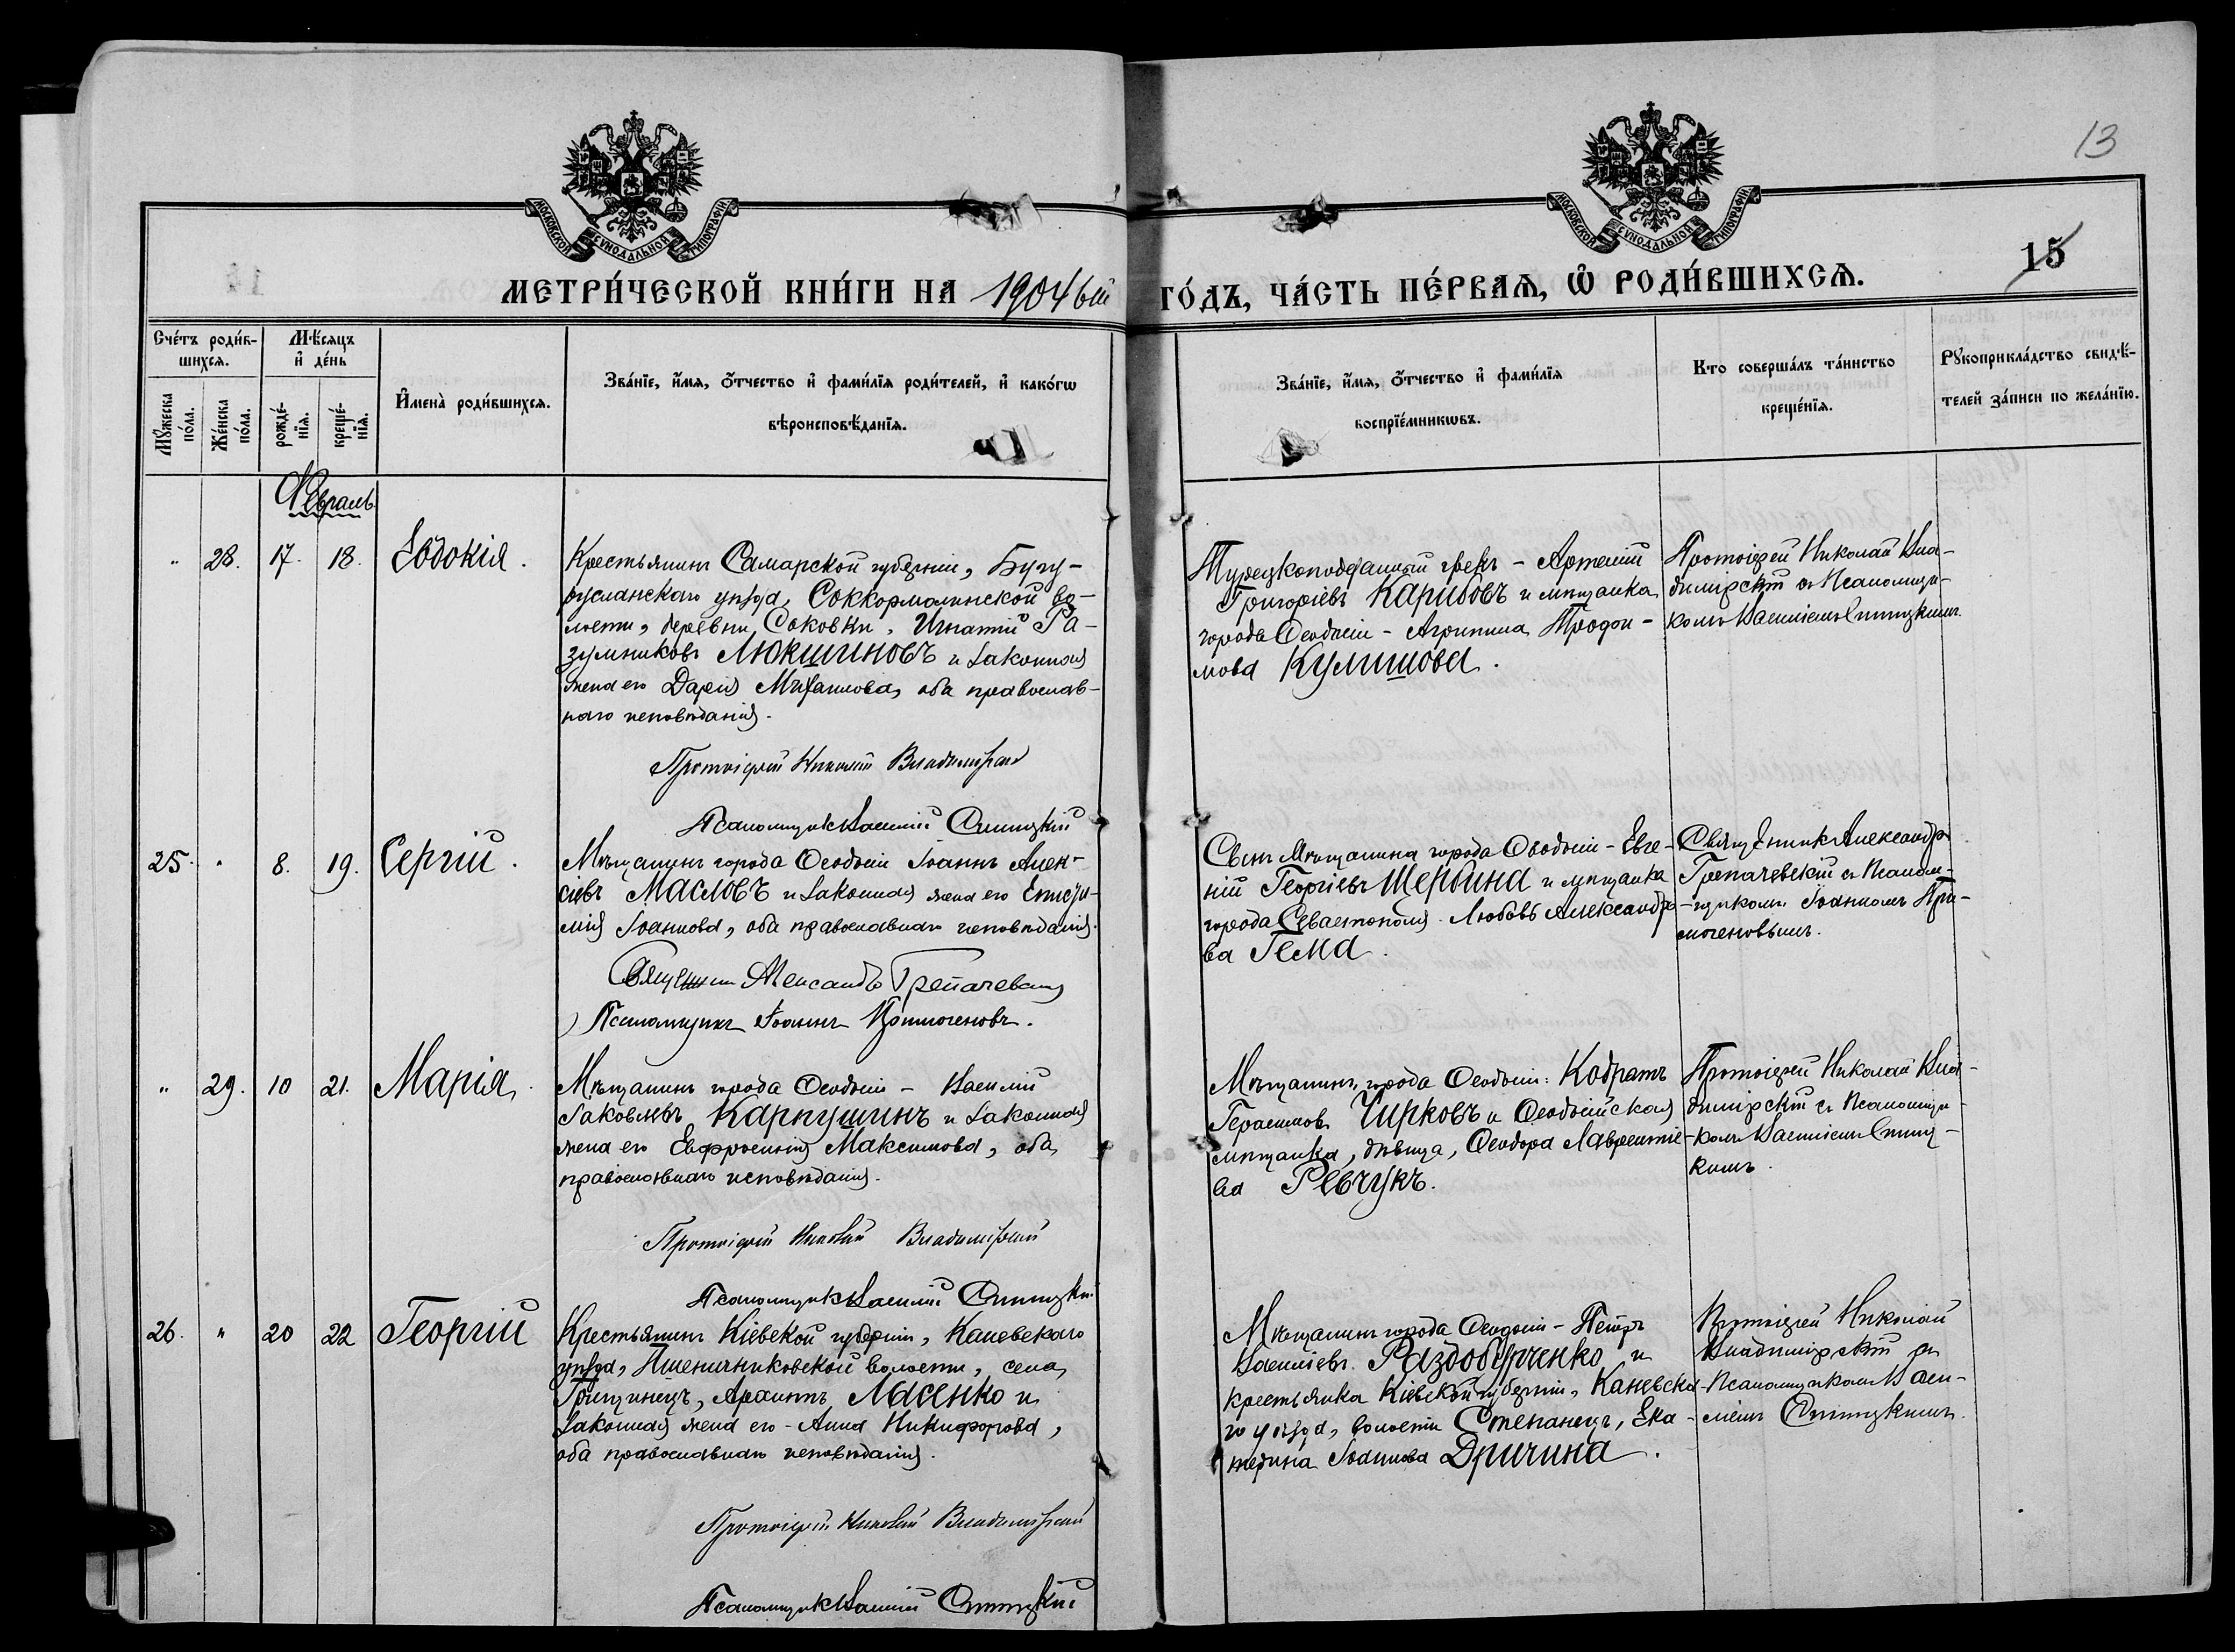 13
МОСКОВСКОЙ СѴНОДАЛЬНОЙ ТИПОГРАФІИ
МОСКОВСКОЙ СѴНОДАЛЬНОЙ ТИПОГРАФІИ
15
МЕТРИ́ЧЕСКОЙ КНИ́ГИ НА 1904 ый ГО́ДЪ, ЧА́СТЬ ПЕ́РВАѦ, Ѡ РОДИ́ВШИХСѦ.
Счétъ роди́в-
шихсѧ.
Мꙋ́жеска по́ла.
Же́нска по́ла.
Мѣ́сяцъ
и҆ де́нь
рожде́-
нїѧ.
креще́-
нїѧ.
И҆мена̀ роди́вшихсѧ.
Зва́нїе, и҆́мѧ, ѻ҆́тчество и҆ фами́лїѧ роди́телей, и҆ како́гѡ
вѣроисповѣ́данїѧ.
Зва́нїе, и҆́мѧ, ѻ҆́тчество и҆ фами́лїѧ
воспрїе́мникѡвъ.
Кто соверша́лъ та́инство
креще́нїѧ.
Рꙋкоприкла́дство свидѣ́-
телей за́писи по жела́нїю.
Февраль
" 28. 17. 18. Евдокія.
Крестьянинъ Самарской губерніи, Бугу-
русланскаго уѣзда, Соккармалинской во-
лости, деревни Соковки, Игнатій Ра-
зумниковъ Люкшиновъ и законная
жена его Дарія Михаилова, оба православ-
наго исповѣданія.
Протоіерей Николай Владимірскій
Псаломщикъ Василій Спитцкій
Турецкоподданный грекъ - Артемій
Григоріевъ Карибовъ и мѣщанка
города Ѳеодосіи - Агрипина Трофи-
мова Кулишова.
Протоіерей Николай Вла-
димірскій съ Псаломщи-
комъ Василіемъ Спитцкимъ.
25. " 8. 19. Сергій.
Мѣщанинъ города Ѳеодосіи Іоаннъ Алек-
сіевъ Масловъ и законная жена его Епистҷ-
мія Іоаннова, оба православнаго исповѣданія.
Священникъ Александръ Трепачевскій
Псаломщикъ Іоаннъ Примогеновъ.
Сынъ Мѣщанина города Ѳеодосіи - Евге-
ній Георгіевъ Щербина и мѣщанка
города Севастополя - Любовь Александро-
ва Гема.
Священникъ Александръ
Трепачевскій съ Псалом-
щикомъ Іоанномъ При-
могеновымъ.
" 29. 10 21. Марія.
Мѣщанинъ города Ѳеодосіи - Василій
Іаковлевъ Карпушинъ и законная
жена его Евфросинія Максимова, оба
православнаго исповѣданія.
Протоіерей Николай Владимірскій
Псаломщикъ Василій Спитцкій
Мѣщанинъ города Ѳеодосіи: Кодратъ
Герасимовъ Чирковъ и Ѳеодосійская
мѣщанка, дѣвица, Ѳеодора Лаврентіе-
ва Ревчукъ.
Протоіерей Николай Вла-
димірскій съ Псаломщи-
комъ Василіемъ Спитц-
кимъ.
26. " 20 22 Георгій
Крестьянинъ Кіевской губерніи, Каневскаго
уѣзда, Пшеничниковской волости, села
Грищинецъ, Архиппъ Масенко и
законная жена его - Анна Никифорова,
оба православнаго исповѣданія.
Протоіерей Николай Владимірскій
Псаломщикъ Василій Спитцкій
Мѣщанинъ города Ѳеодосіи - Петръ
Василіевъ Раздобурченко и
крестьянка Кіевской губерніи, Каневска-
го уѣзда, волости Степанецъ, Ека-
терина Іоаннова Дричина.
Протоіерей Николай
Владимірскій съ
Псаломщикомъ Васи-
ліемъ Спитцкимъ.